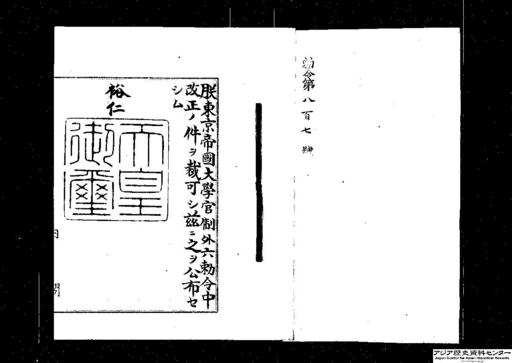 勅令第八百七號
朕東京帝國大學官制外六勅令中
改正ノ件ヲ裁可シ茲ニ之ヲ公布セ
シム
裕仁
天皇
御璽
内 閣
アジア歴史資料センター
Japan Center for Asian Historical Records